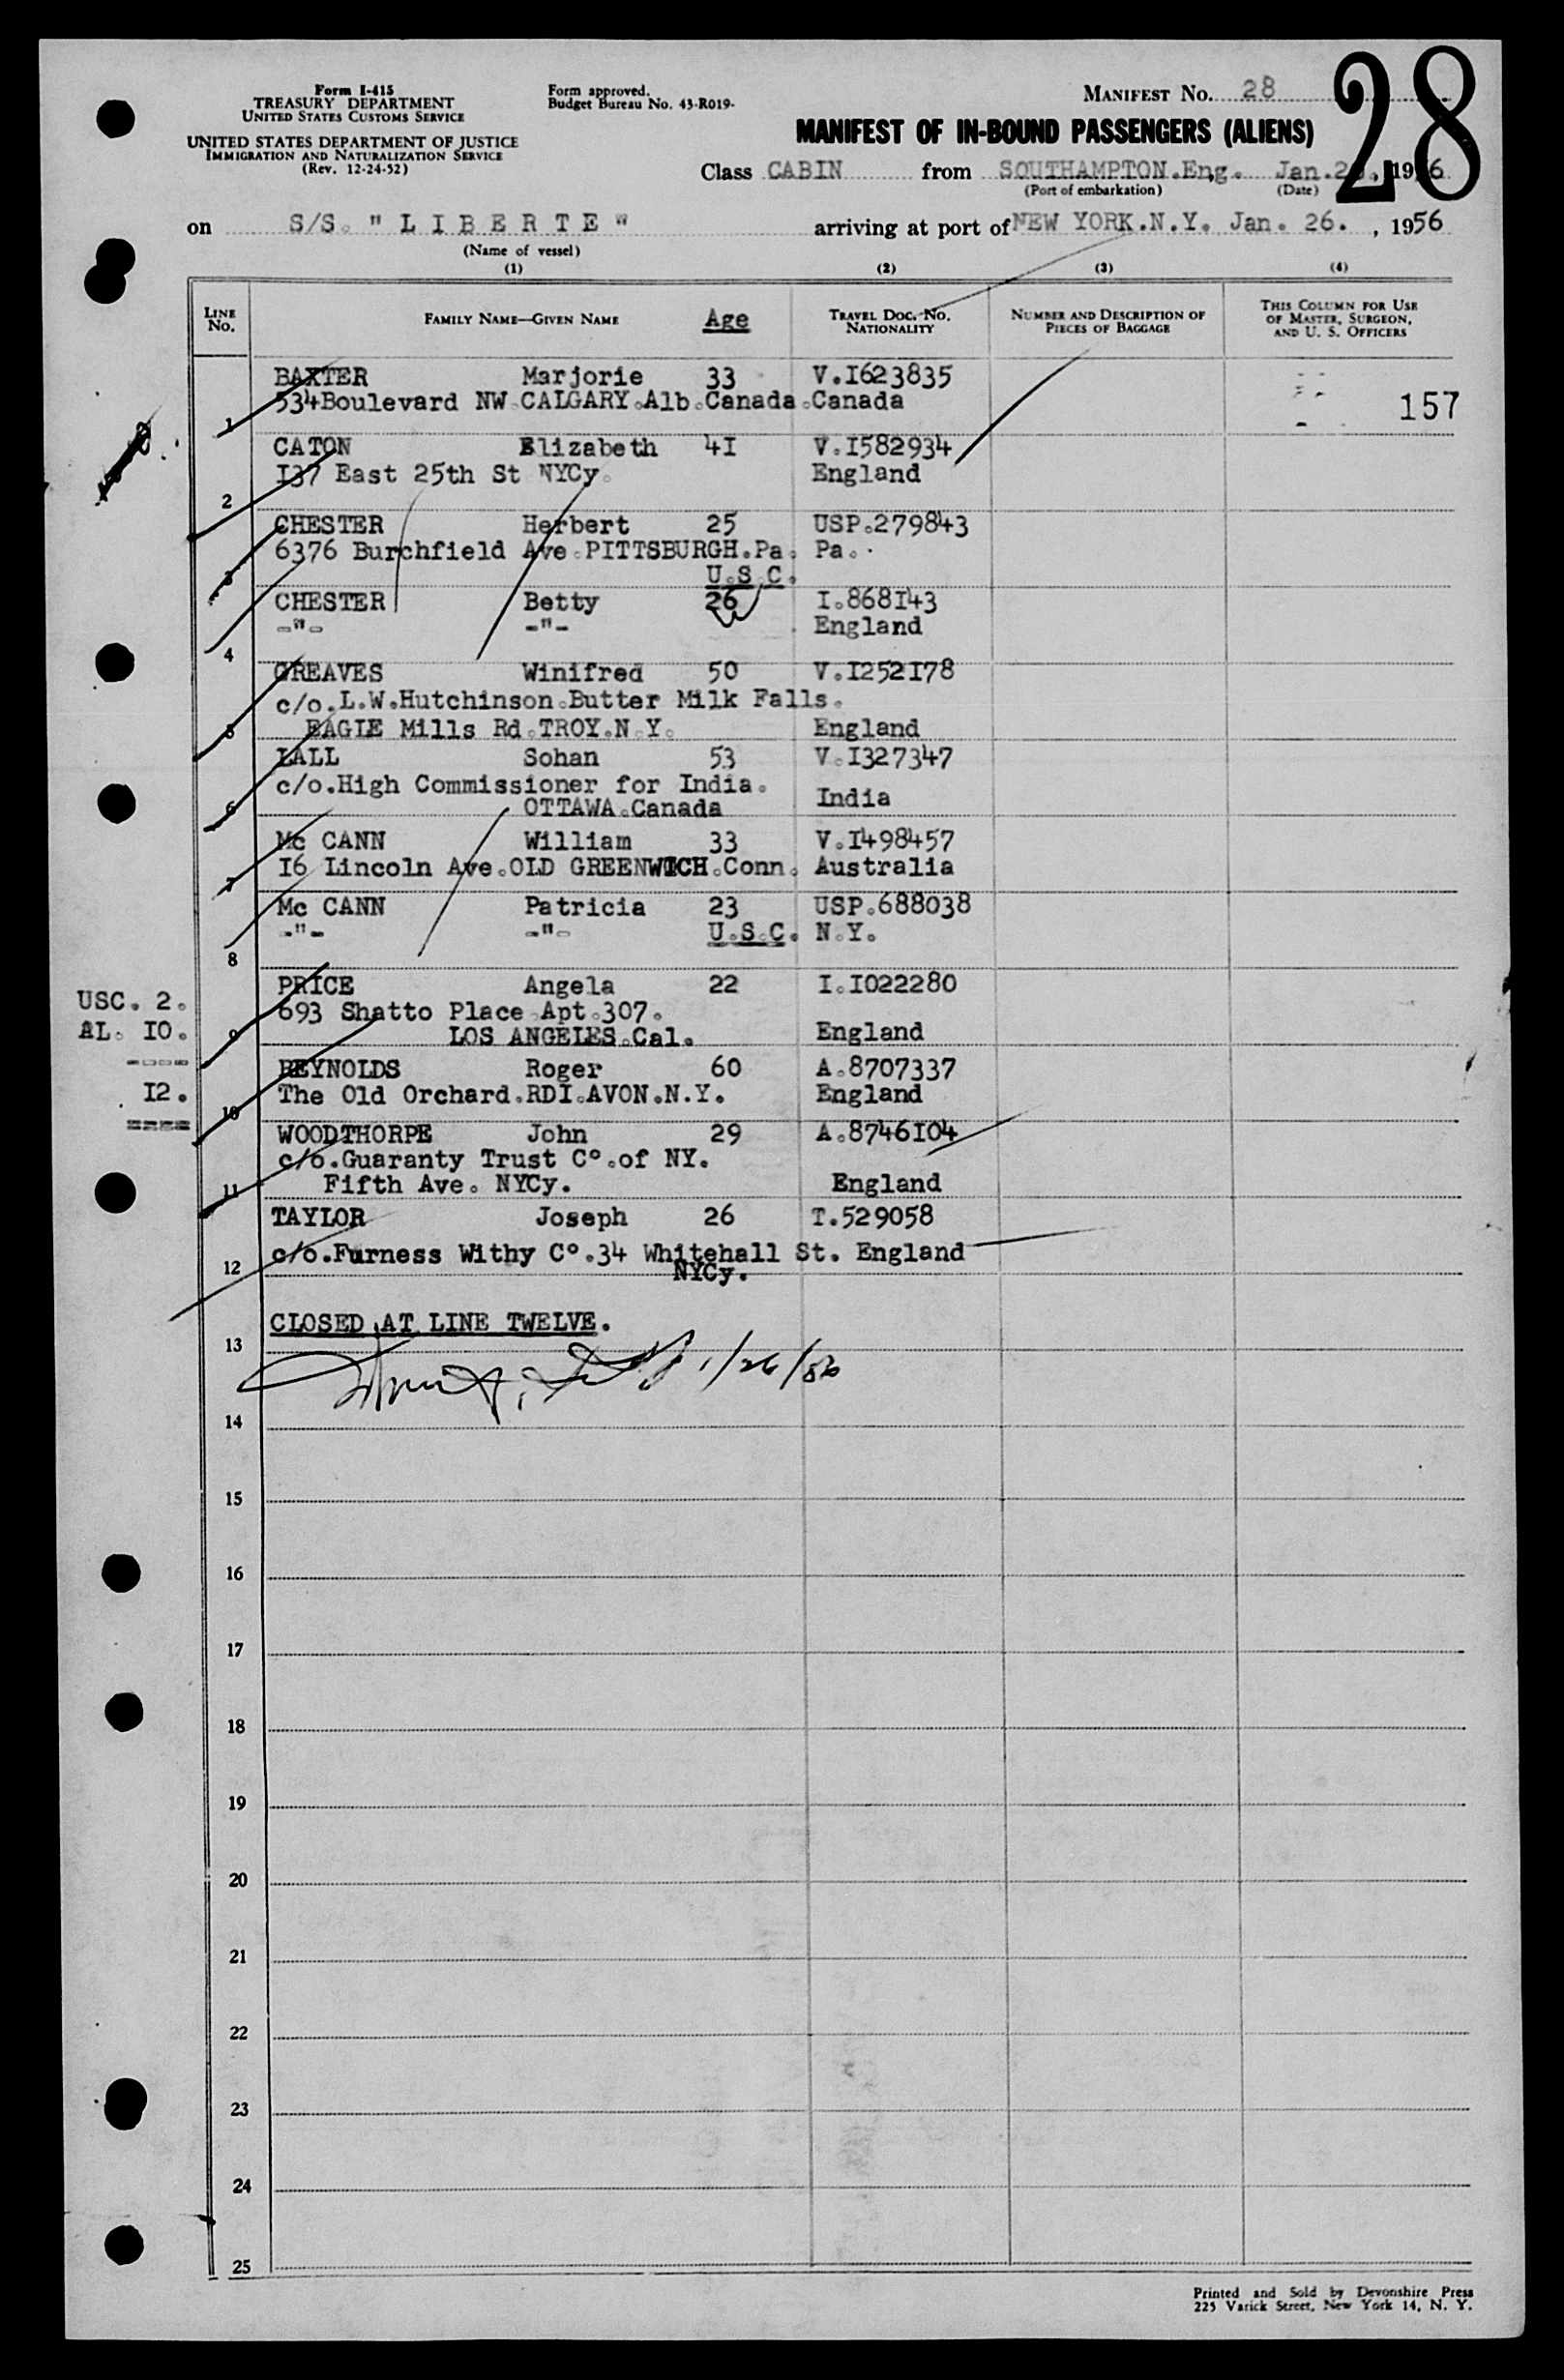 Form I-415
TREASURY DEPARTMENT
UNITED STATES CUSTOMS SERVICE
UNITED STATES DEPARTMENT OF JUSTICE
IMMIGRATION AND NATURALIZATION SERVICE
(Rev. 12-24-52)
Form approved.
Budget Bureau No. 43-R019-
MANIFEST No. 28
28
MANIFEST OF IN-BOUND PASSENGERS (ALIENS)
Class CABIN from SOUTHAMPTON.Eng. Jan. 1956
(Port of embarkation) (Date)
on S/S. "LIBERTE" arriving at port of NEW YORK.N.Y. Jan. 26. , 1956
(Name of vessel)
(1) (2) (3) (4)
LINE No. FAMILY NAME—GIVEN NAME Age TRAVEL DOC. NO. NATIONALITY NUMBER AND DESCRIPTION OF PIECES OF BAGGAGE THIS COLUMN FOR USE OF MASTER, SURGEON, AND U. S. OFFICERS
BAXTER Marjorie 33 V.I623835
1 534Boulevard NW.CALGARY.Alb.Canada.Canada 157
CATON Elizabeth 4I V.I582934
I37 East 25th St NYCy. England
2
CHESTER Herbert 25 USP.279843
6376 Burchfield Ave.PITTSBURGH.Pa. Pa.
3 U.S.C.
CHESTER Betty 26 I.868I43
-"- -"- England
4
GREAVES Winifred 50 V.I252I78
c/o.L.W.Hutchinson.Butter Milk Falls.
5 EAGLE Mills Rd.TROY.N.Y. England
LALL Sohan 53 V.I327347
c/o.High Commissioner for India.
6 OTTAWA.Canada India
Mc CANN William 33 V.I498457
7 I6 Lincoln Ave.OLD GREENWICH.Conn. Australia
Mc CANN Patricia 23 USP.688038
-"- -"- U.S.C. N.Y.
8
PRICE Angela 22 I.I022280
USC. 2. 693 Shatto Place Apt.307.
AL. I0. 9 LOS ANGELES.Cal. England
REYNOLDS Roger 60 A.8707337
I2. 10 The Old Orchard.RDI.AVON.N.Y. England
WOODTHORPE John 29 A.8746I04
c/o.Guaranty Trust C°.of NY.
11 Fifth Ave. NYCy. England
TAYLOR Joseph 26 T.529058
12 c/o.Furness Withy C°.34 Whitehall St. England
NYCy.
CLOSED AT LINE TWELVE.
13
1/26/56
14
15
16
17
18
19
20
21
22
23
24
25
Printed and Sold by Devonshire Press
225 Varick Street, New York 14, N. Y.